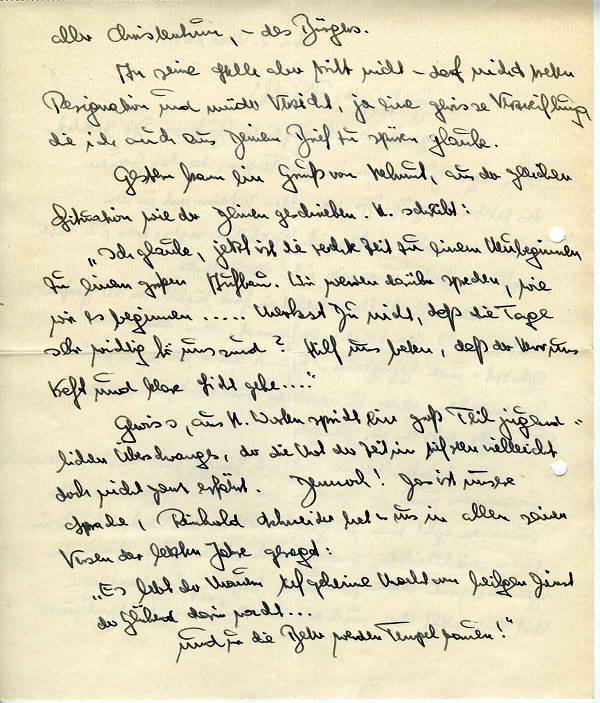 aller Christentum, – des Bürgers.
An seine Stelle aber tritt nicht – darf nicht treten
Resignation und müder Verzicht, ja eine gewisse Verzweiflung,
die ich auch aus Deinem Brief zu spüren glaube.
Gestern kam ein Gruß von Helmut, aus der gleichen
Situation wie der Deinen geschrieben. H. schreibt:
„Ich glaube, jetzt ist die rechte Zeit zu einem Neubeginnen
zu einem großen Aufbau. Wir werden darüber sprechen, wie
wir es beginnen ..... Merkst Du nicht, daß die Tage
sehr wichtig für uns sind? Hilf uns beten, daß der Herr uns
Kraft und klare Sicht gebe...."
Gewiss, aus H. Worten spricht ein groß Teil jugend-
lichen Überschwangs, der die Not der Zeit im tiefsten vielleicht
doch nicht ganz erfährt. Dennoch! Das ist unsere
Sprache, Reinhold Schneider hat es uns in allen seinen
Versen der letzten Jahre gesagt:
„Es lebt der Mauern tief geheime Macht vom heilgen Geist
der glühend darin wacht...
und in die Beter werden Tempel bauen!"